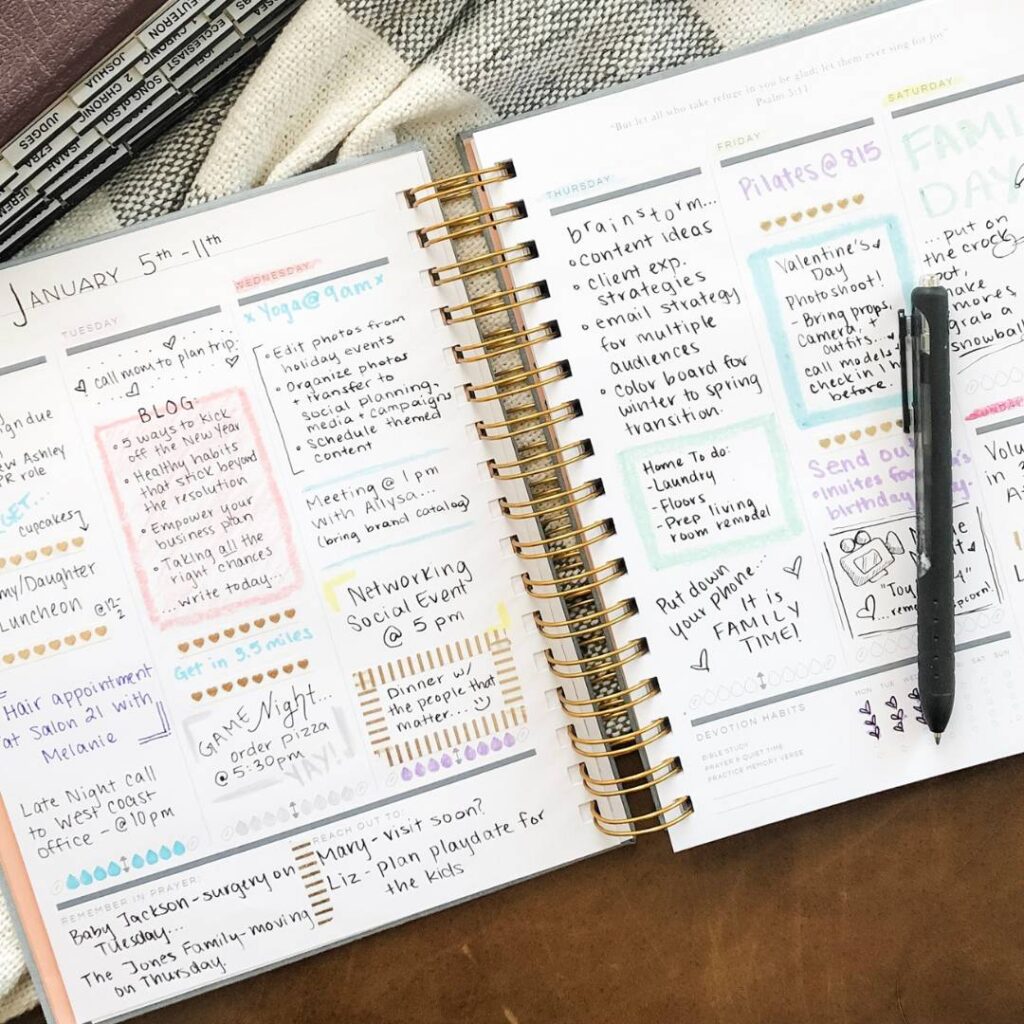 JOSHUA
JUDGES
2 CHRONIC
EZRA
ISAIAH
SONG of SOL
ECCLESIAST
JEREM
JANUARY 5th-11th
due
Ashley
PR role
cupcakes
/Daughter
Luncheon @12-2
Hair appointment
at Salon 21 with
Melanie
Late Night call
to West coast
office - @10pm
TUESDAY
call mom to plan trip
BLOG:
• 5 ways to kick
off the New Year
• Healthy habits
that stick beyond
the resolution
• Empower your
business plan
• Taking all the
right chances
...write today...
Get in 3.5 miles
GAME Night...
order pizza
@5:30pm
YAY!
WEDNESDAY
x Yoga@9am x
• Edit photos from
holiday events
• Organize photos
+ transfer to
social planning,
media + campaigns
• Schedule themed
content
Meeting @ 1pm
with Allysa...
(bring brand catalog)
Networking
Social Event
@ 5 pm
Dinner w/
the people that
matter...
REMEMBER IN PRAYER:
Baby Jackson - surgery on
Tuesday...
The Jones Family - moving
on Thursday.
REACH OUT TO:
Mary - visit soon?
Liz - plan playdate for
the kids
"But let all who take refuge in you be glad; let them ever sing for joy."
Psalm 5:11
THURSDAY
brainstorm...
• content ideas
• client exp.
strategies
• email strategy
for multiple
audiences
• color board for
winter to spring
transition.
Home To do:
- Laundry
- Floors
- Prep living
room remodel
Put down
your phone...
It is
FAMILY
TIME!
FRIDAY
Pilates@815
Valentine's
Day
Photoshoot!
- Bring props,
camera, +
outfits...
call models
check in 1h
before.
Send out
• Invites for
birthday
"Toy 4"
popcorn!
SATURDAY
FAMILY
DAY
...put on
the crock
pot,
make
smores
grab a
snowball
SUNDAY
in
DEVOTION HABITS
BIBLE STUDY
PRAYER & QUIET TIME
PRACTICE MEMORY VERSE
MON TUE WED THU FRI SAT SUN